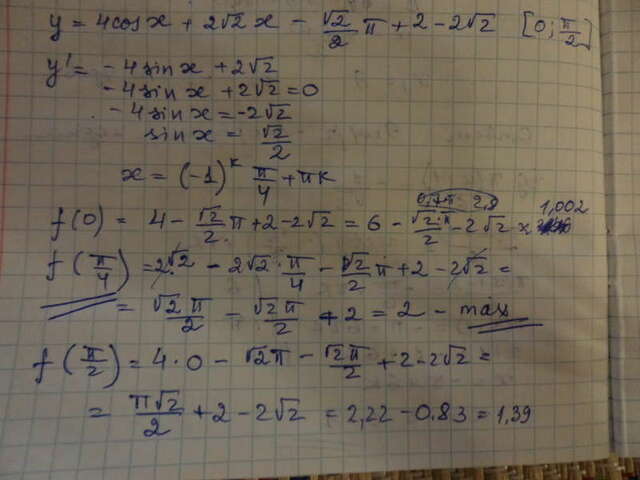 y = 4cosx + 2√2 x − √2/2 π + 2 − 2√2 [0; π/2]
y' = −4sinx + 2√2
−4sinx + 2√2 = 0
−4sinx = −2√2
sinx = √2/2
x = (−1)^k π/4 + πk
f(0) = 4 − √2/2 π + 2 − 2√2 = 6 − √2·π/2 − 2√2 ≈ 1,002
f(π/4) = 2·√2 − 2√2 · π/4 − √2/2 π + 2 − 2√2 =
= √2π/2 − √2π/2 + 2 = 2 − max
f(π/2) = 4·0 − √2π − √2π/2 + 2 − 2√2 =
= π√2/2 + 2 − 2√2 = 2,22 − 0.83 = 1,39